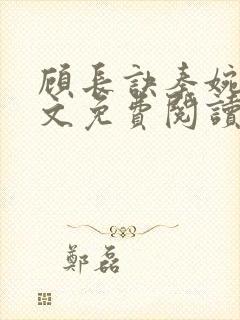 顾长訣秦婉
文免費閱讀
鄭磊